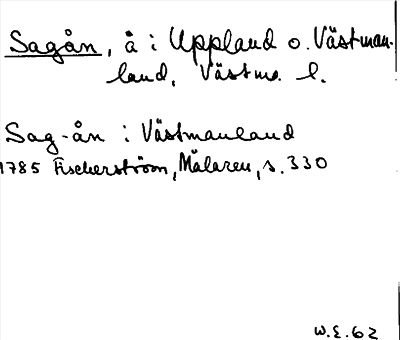 Sagån, å i Uppland o. Västman-
land, Västm. l.
Sag-ån i Västmanland
1785 Fischerström, Mälaren, s. 330
W.E. 62